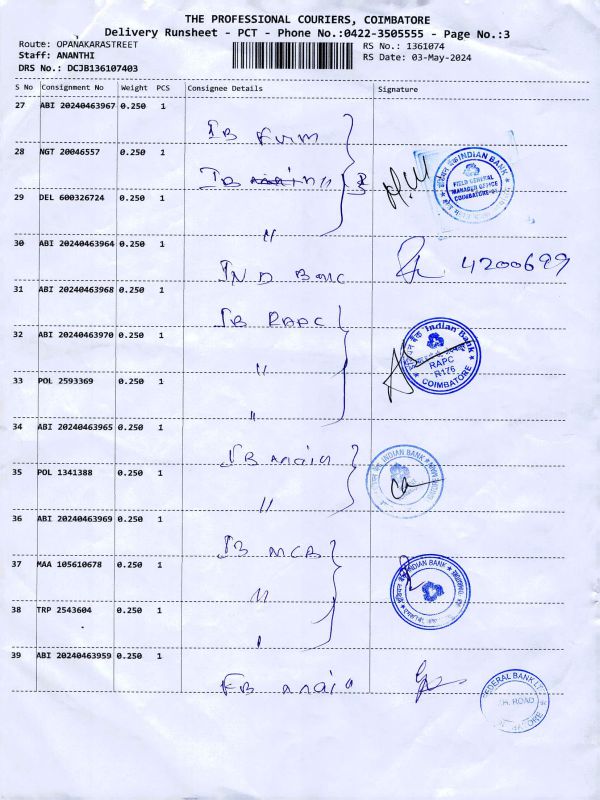 THE PROFESSIONAL COURIERS, COIMBATORE
Delivery Runsheet - PCT - Phone No.:0422-3505555 - Page No.:3
Route: OPANAKARASTREET
RS No.: 1361074
Staff: ANANTHI
RS Date: 03-May-2024
DRS No.: DCJB136107403
S No Consignment No Weight PCS Consignee Details Signature
27 ABI 20240463967 0.250 1
IB FGM
28 NGT 20046557 0.250 1
IB
INDIAN BANK
FIELD GENERAL
MANAGER OFFICE
COIMBATORE
29 DEL 600326724 0.250 1
"
30 ABI 20240463964 0.250 1
IND Bank
4200699
31 ABI 20240463968 0.250 1
IB RAPC
32 ABI 20240463970 0.250 1
"
इंडियन बैंक Indian Bank
RAPC
R176
COIMBATORE
33 POL 2593369 0.250 1
"
34 ABI 20240463965 0.250 1
IB main
INDIAN BANK
35 POL 1341388 0.250 1
"
ca
36 ABI 20240463969 0.250 1
IB MCB
37 MAA 105610678 0.250 1
"
इंडियन बैंक INDIAN BANK
38 TRP 2543604 0.250 1
39 ABI 20240463959 0.250 1
FB main
FEDERAL BANK LT
ROAD